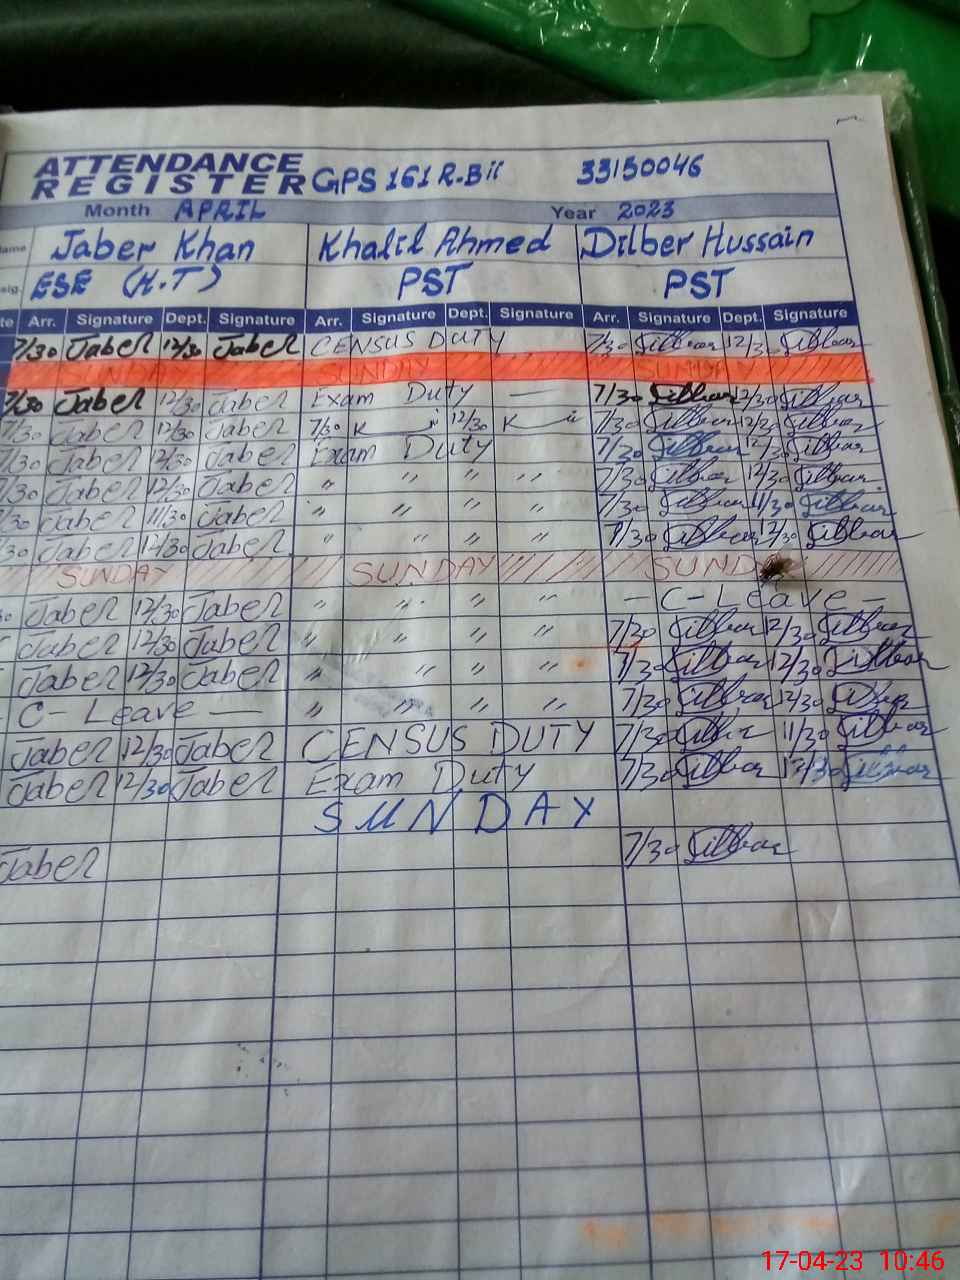 ATTENDANCE
REGISTER GPS 161 R-Bii 33150046
Month APRIL Year 2023
ame Jaber Khan Khalil Ahmed Dilber Hussain
sig. ESE (H.T) PST PST
te Arr. Signature Dept. Signature Arr. Signature Dept. Signature Arr. Signature Dept. Signature
7/30 Jaber 12/30 Jaber CENSUS DUTY 7/30 Dilbar 12/30 Dilbar
SUNDAY SUNDAY SUNDAY
7/30 Jaber 12/30 Jaber Exam Duty — 7/30 Dilbar 12/30 Dilbar
7/30 Jaber 12/30 Jaber 7/30 12/30 7/30 Dilbar 12/30 Dilbar
7/30 Jaber 12/30 Jaber Exam Duty 7/30 Dilbar 12/30 Dilbar
7/30 Jaber 12/30 Jaber " " " " 7/30 Dilbar 12/30 Dilbar
/30 Jaber 11/30 Jaber " " " " 7/30 Dilbar 11/30 Dilbar
/30 Jaber 12/30 Jaber " " " " 7/30 Dilbar 12/30 Dilbar
SUNDAY SUNDAY SUND
Jaber 12/30 Jaber " " " " - C-Leave -
Jaber 12/30 Jaber " " " " 7/30 Dilbar 12/30 Dilbar
Jaber 12/30 Jaber " " " " 7/30 Dilbar 12/30 Dilbar
C-Leave — " " " " 7/30 Dilbar 12/30 Dilbar
Jaber 12/30 Jaber CENSUS DUTY 7/30 Dilbar 11/30 Dilbar
Jaber 12/30 Jaber Exam Duty 7/30 Dilbar 12/30 Dilbar
SUNDAY
Jaber 7/30 Dilbar
17-04-23 10:46